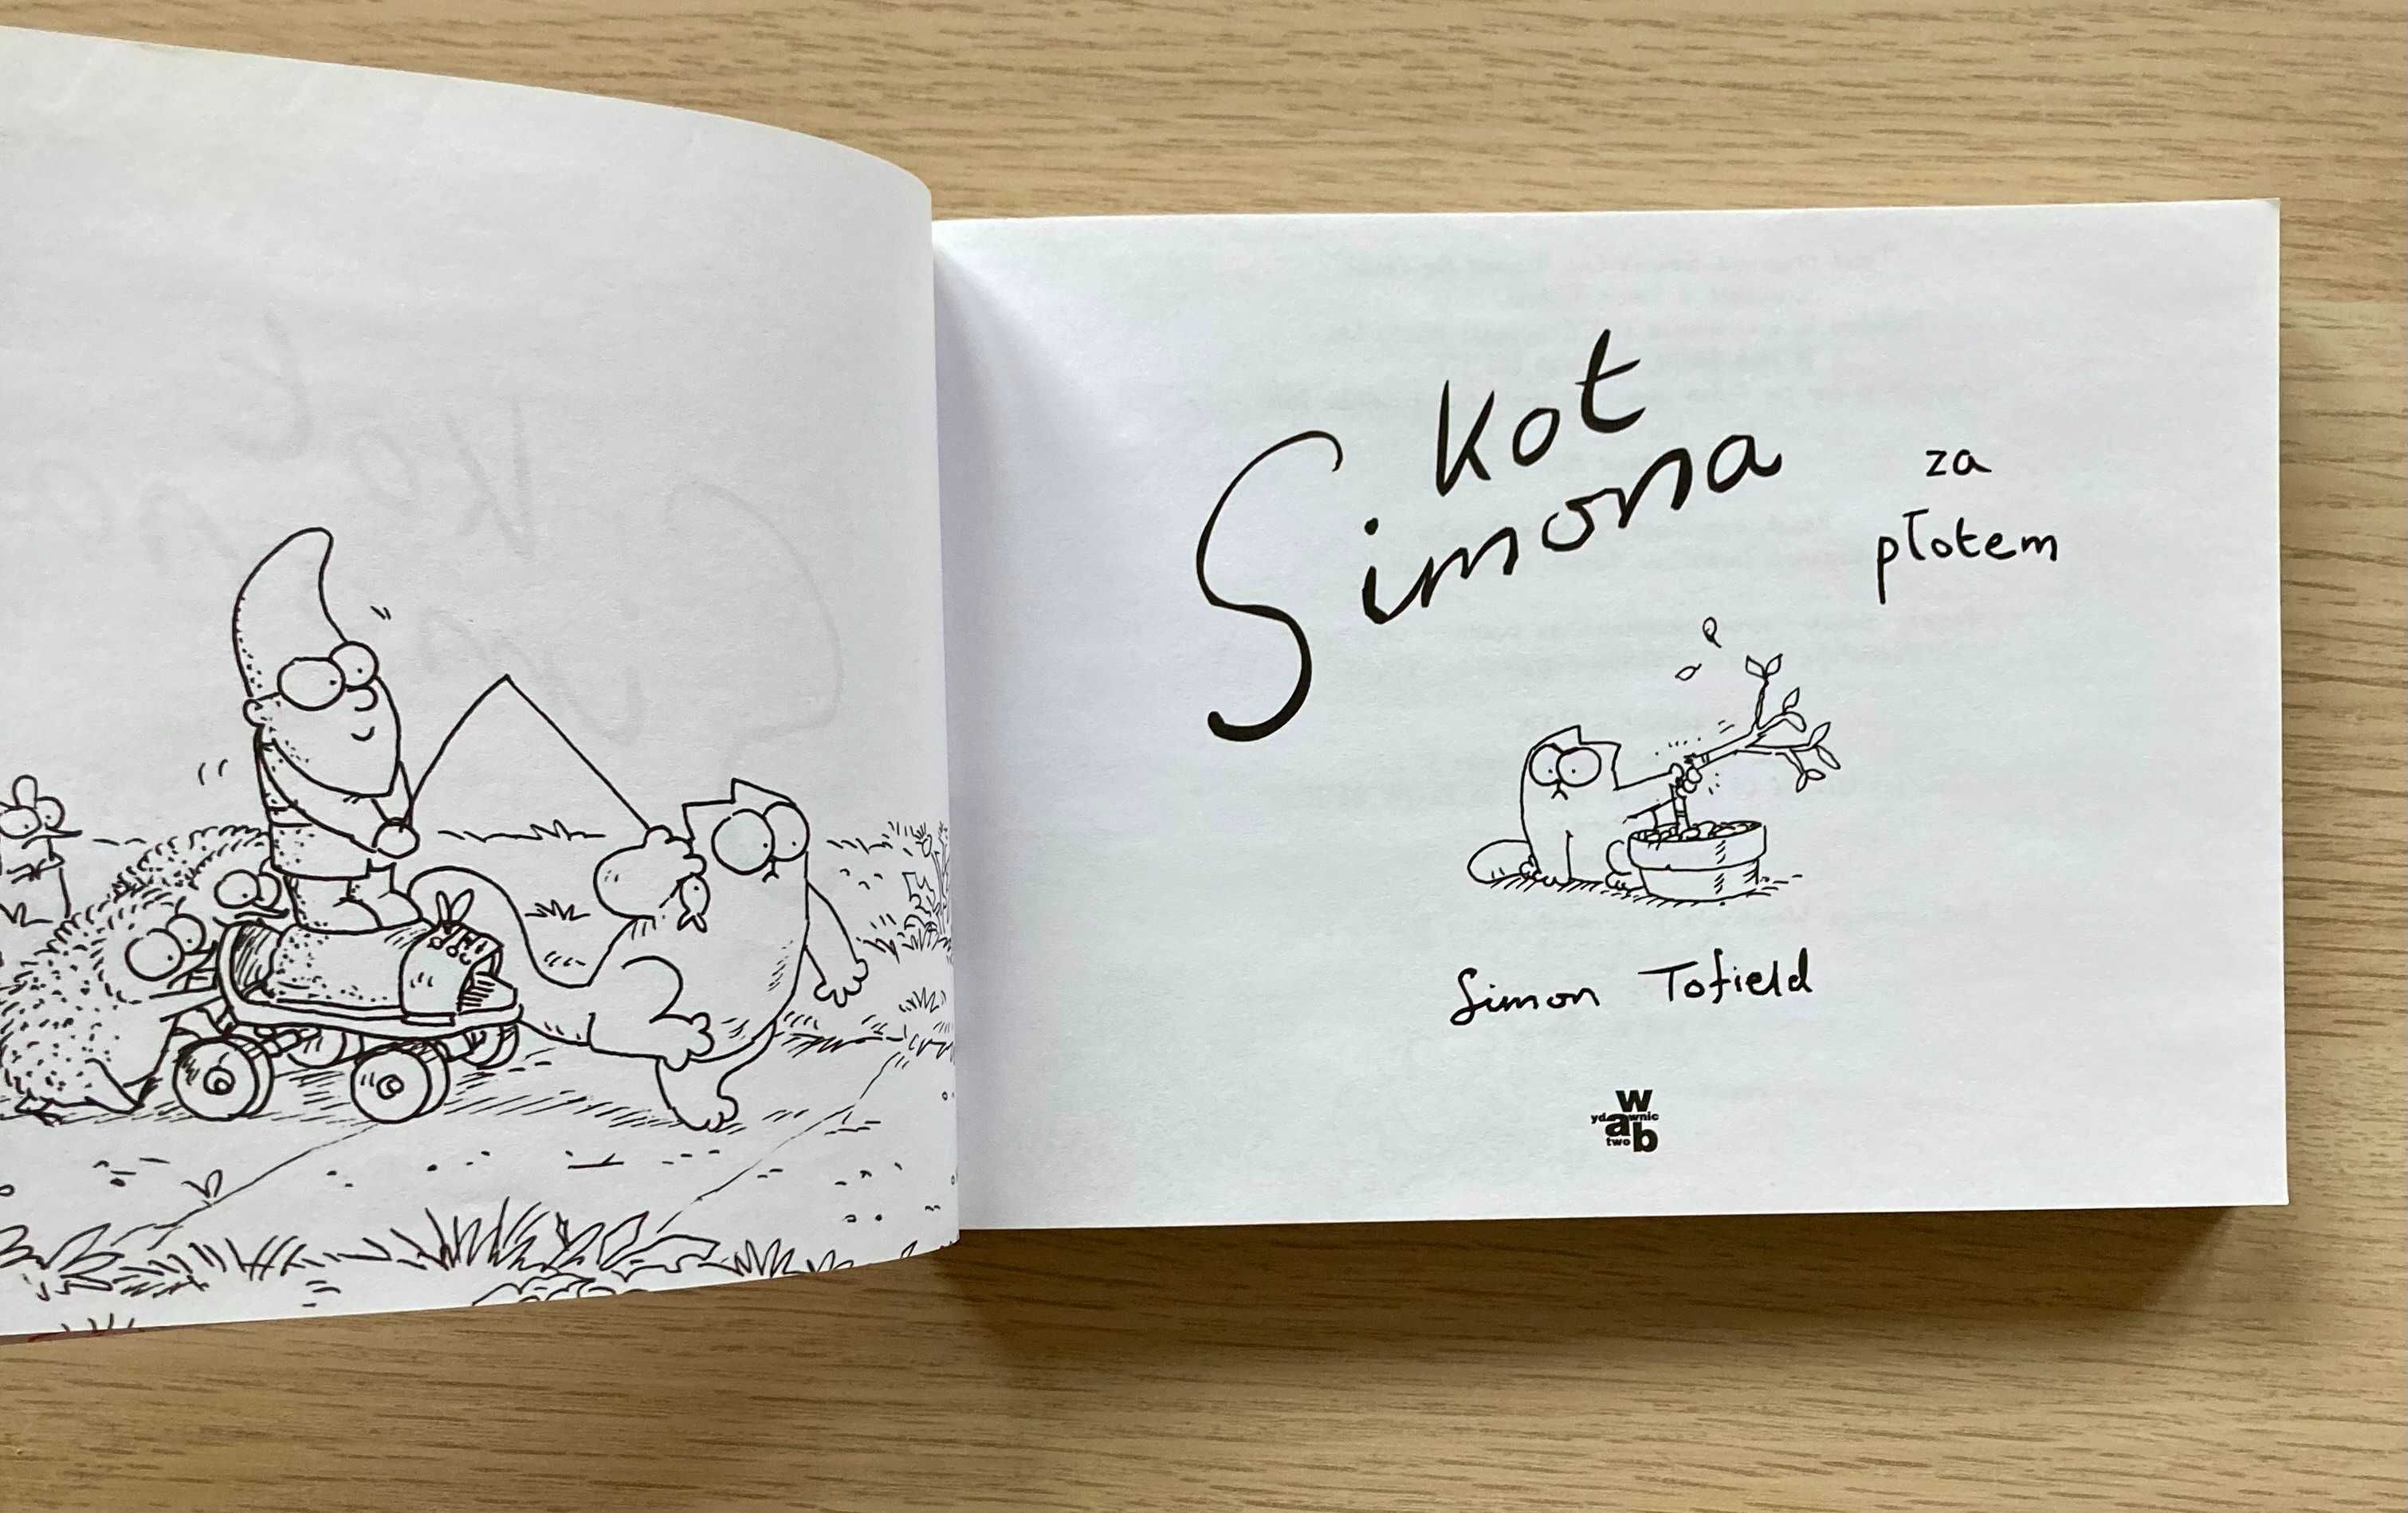 kot
Simona
za
płotem
Simon Tofield
w
ydawnic
two
ab